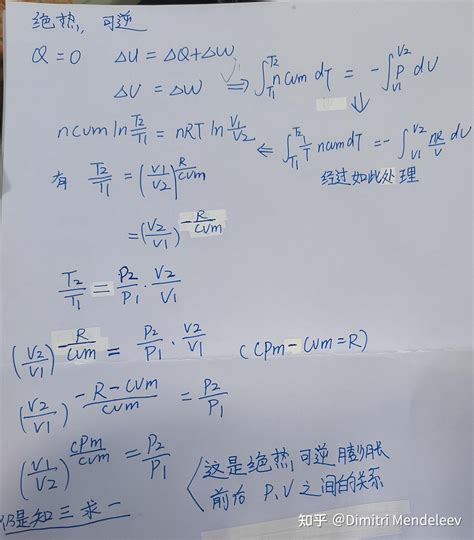 绝热,可逆
Q=0 ΔU=ΔQ+ΔW
ΔU=ΔW ⇒ ∫_{T1}^{T2} ncvm dT = -∫_{V1}^{V2} p dV
↓
ncvm ln T2/T1 = nRT ln V1/V2 ⇐ ∫_{T1}^{T2} 1/T ncvm dT = -∫_{V1}^{V2} nR/V dV
经过如此处理
有 T2/T1 = (V1/V2)^{R/cvm}
=(V2/V1)^{-R/cvm}
T2/T1 = P2/P1 · V2/V1
(V2/V1)^{-R/cvm} = P2/P1 · V2/V1 (CPm-CVm=R)
(V2/V1)^{-R-cvm/cvm} = P2/P1
(V1/V2)^{cPm/cvm} = P2/P1
这是绝热,可逆膨胀
前后 P,V 之间的关系
仍是知三求一
知乎 @Dimitri Mendeleev